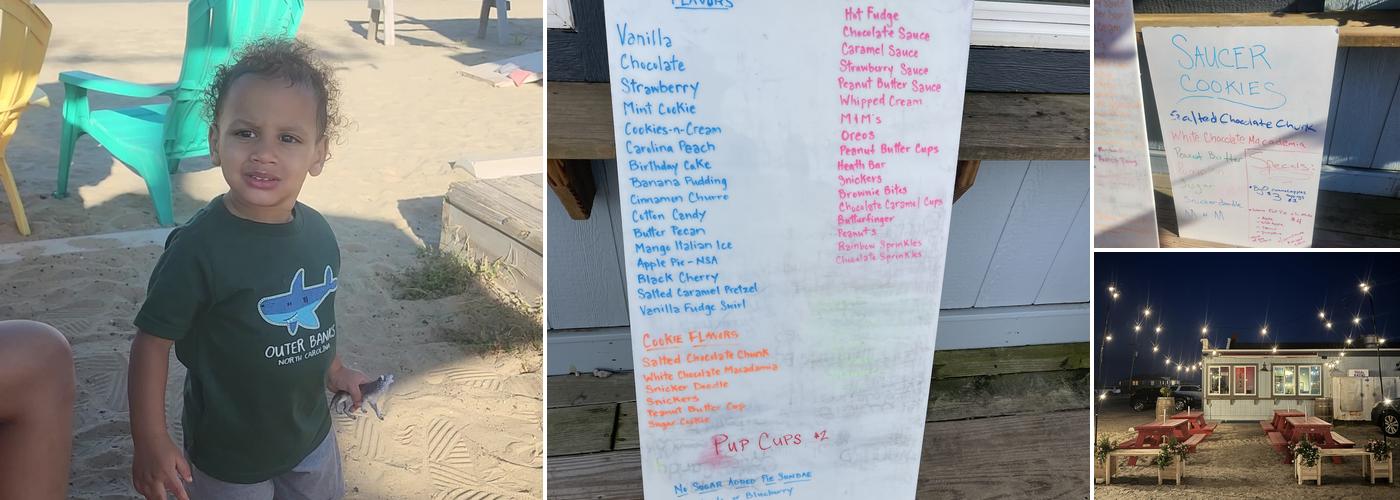 OUTER BANKS
NORTH CAROLINA
FLAVORS
Vanilla
Chocolate
Strawberry
Mint Cookie
Cookies-n-Cream
Carolina Peach
Birthday Cake
Banana Pudding
Cinnamon Churro
Cotton Candy
Butter Pecan
Mango Italian Ice
Apple Pie - NSA
Black Cherry
Salted Caramel Pretzel
Vanilla Fudge Swirl
COOKIE FLAVORS
Salted Chocolate Chunk
White Chocolate Macadamia
Snicker Doodle
Snickers
Peanut Butter Cup
Sugar Cookie
PUP CUPS $2
NO SUGAR ADDED PIE SUNDAE
or Blueberry
Hot Fudge
Chocolate Sauce
Caramel Sauce
Strawberry Sauce
Peanut Butter Sauce
Whipped Cream
M+M's
Oreos
Peanut Butter Cups
Heath Bar
Snickers
Brownie Bites
Chocolate Caramel Cups
Butterfinger
Peanuts
Rainbow Sprinkles
Chocolate Sprinkles
SAUCER
COOKIES
Salted Chocolate Chunk
White Chocolate Macadamia
Peanut Butter
Sugar
Snickerdoodle
M+M
Specials:
$3
$4